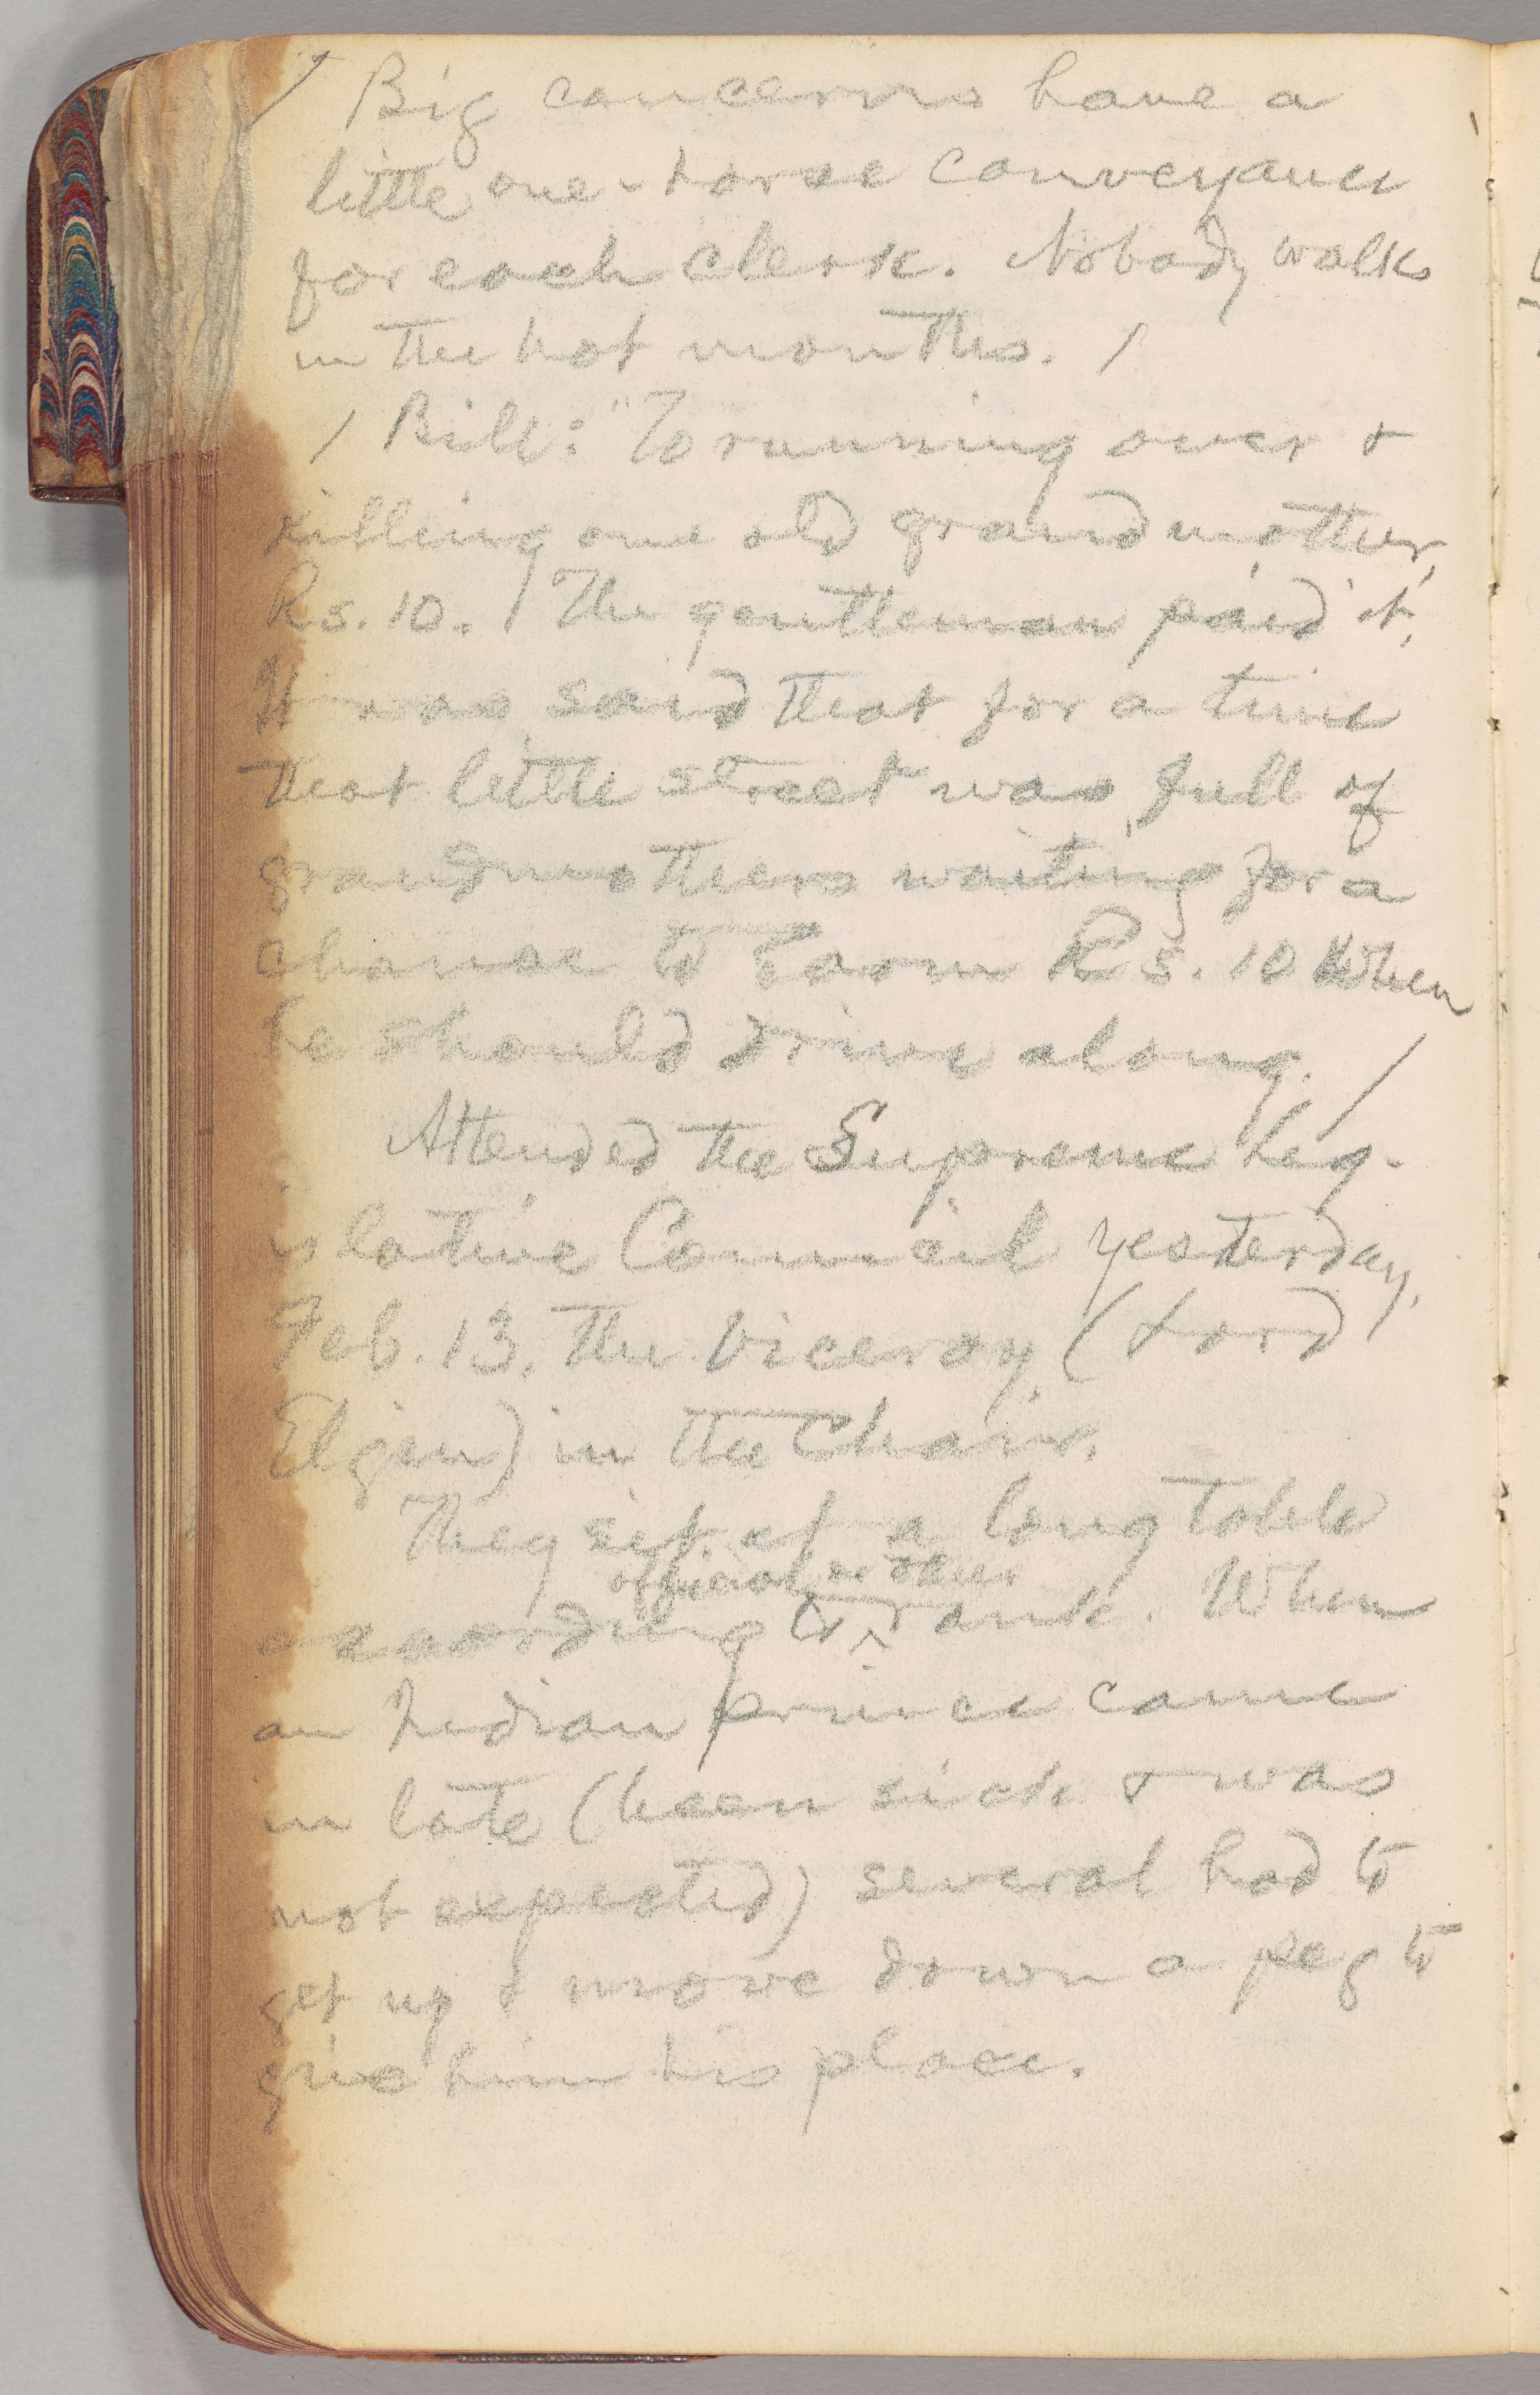 / Big concerns have a
little one-horse conveyance
for each clerk. Nobody walks
in the hot months. /
/ Bill: "To running over &
killing one old grandmother,
Rs. 10. / The gentleman paid it.
It was said that for a time
that little street was full of
grandmothers waiting for a
chance to earn Rs. 10 when
he should drive along. /
Attended the Supreme Leg-
islative Council yesterday,
Feb. 13, the Viceroy, (Lord
Elgin) in the Chair.
They sit at a long table
official or other
according to ^ rank. When
an Indian prince came
in late (been sick & was
not expected) several had to
get up & move down a peg to
give him his place.